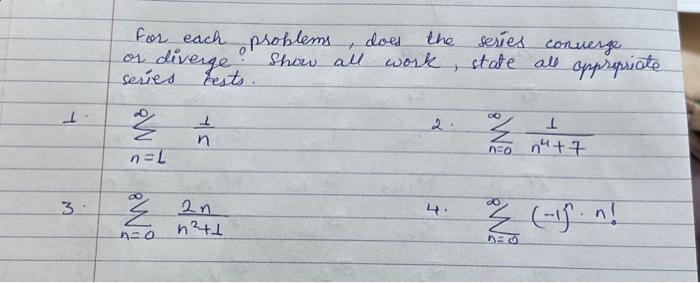 for each problems, does the series converge
or diverge? Show all work, state all appropriate
series tests.
1. ∞ Σ n=1 1/n 2. ∞ Σ n=0 1/(n⁴+7)
3. ∞ Σ n=0 2n/(n²+1) 4. ∞ Σ n=0 (-1)ⁿ · n!